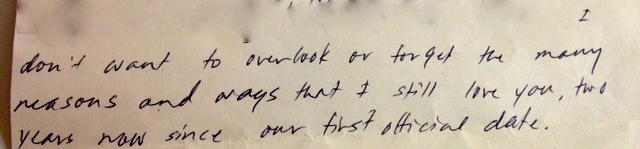 I
don't want to overlook or forget the many
reasons and ways that I still love you, two
years now since our first official date.